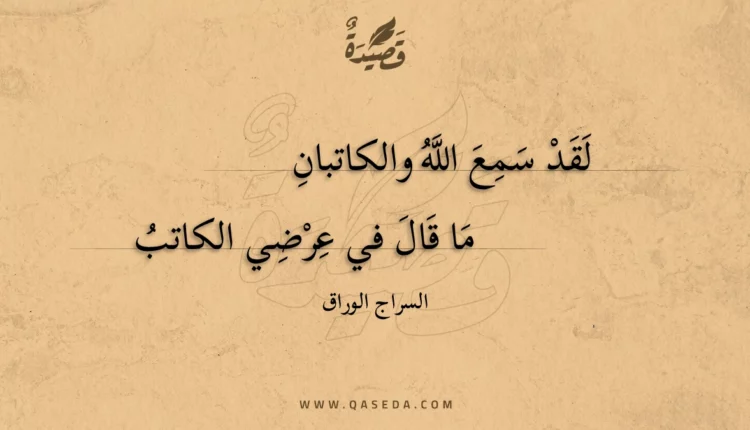 قَصِيْدَةٌ
لَقَدْ سَمِعَ اللَّهُ والكاتبانِ
مَا قَالَ في عِرْضِي الكاتبُ
السراج الوراق
WWW.QASEDA.COM